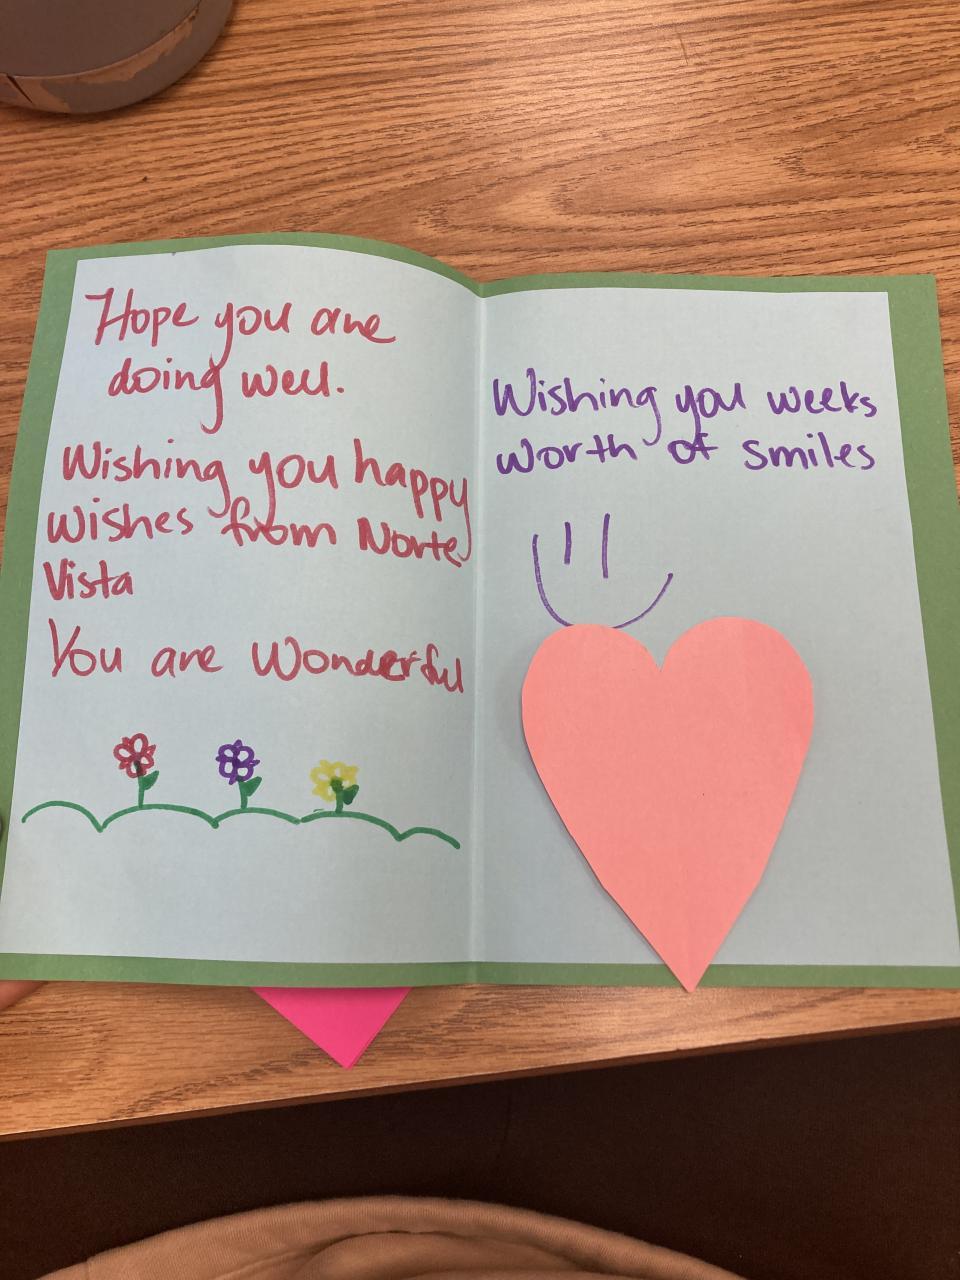 Hope you are
doing well.
Wishing you happy
wishes from Norte
Vista
You are Wonderful
Wishing you weeks
worth of smiles